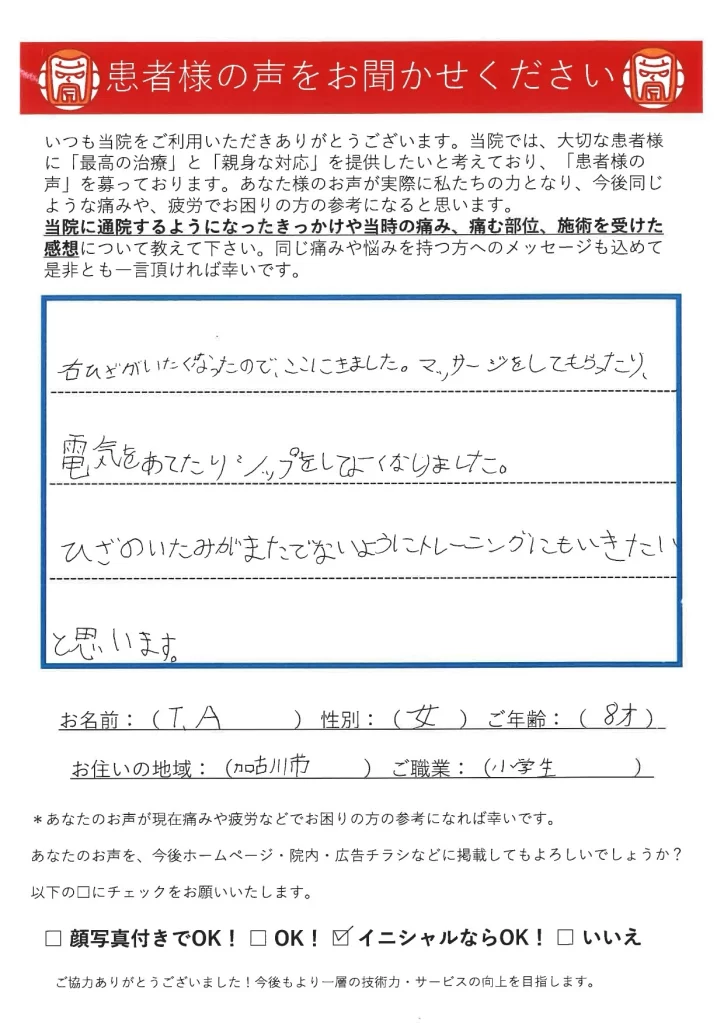 患者様の声をお聞かせください
いつも当院をご利用いただきありがとうございます。当院では、大切な患者様
に「最高の治療」と「親身な対応」を提供したいと考えており、「患者様の
声」を募っております。あなた様のお声が実際に私たちの力となり、今後同じ
ような痛みや、疲労でお困りの方の参考になると思います。
当院に通院するようになったきっかけや当時の痛み、痛む部位、施術を受けた
感想について教えて下さい。同じ痛みや悩みを持つ方へのメッセージも込めて
是非とも一言頂ければ幸いです。
右ひざがいたくなったので、ここにきました。マッサージをしてもらったり、
電気をあてたりシップをしてよくなりました。
ひざのいたみがまたでないようにトレーニングにもいきたい
と思います。
お名前：（T.A）性別：（女）ご年齢：（8才）
お住いの地域：（加古川市）ご職業：（小学生）
＊あなたのお声が現在痛みや疲労などでお困りの方の参考になれば幸いです。
あなたのお声を、今後ホームページ・院内・広告チラシなどに掲載してもよろしいでしょうか？
以下の□にチェックをお願いいたします。
□ 顔写真付きでOK！ □ OK！ ☑ イニシャルならOK！ □ いいえ
ご協力ありがとうございました！今後もより一層の技術力・サービスの向上を目指します。